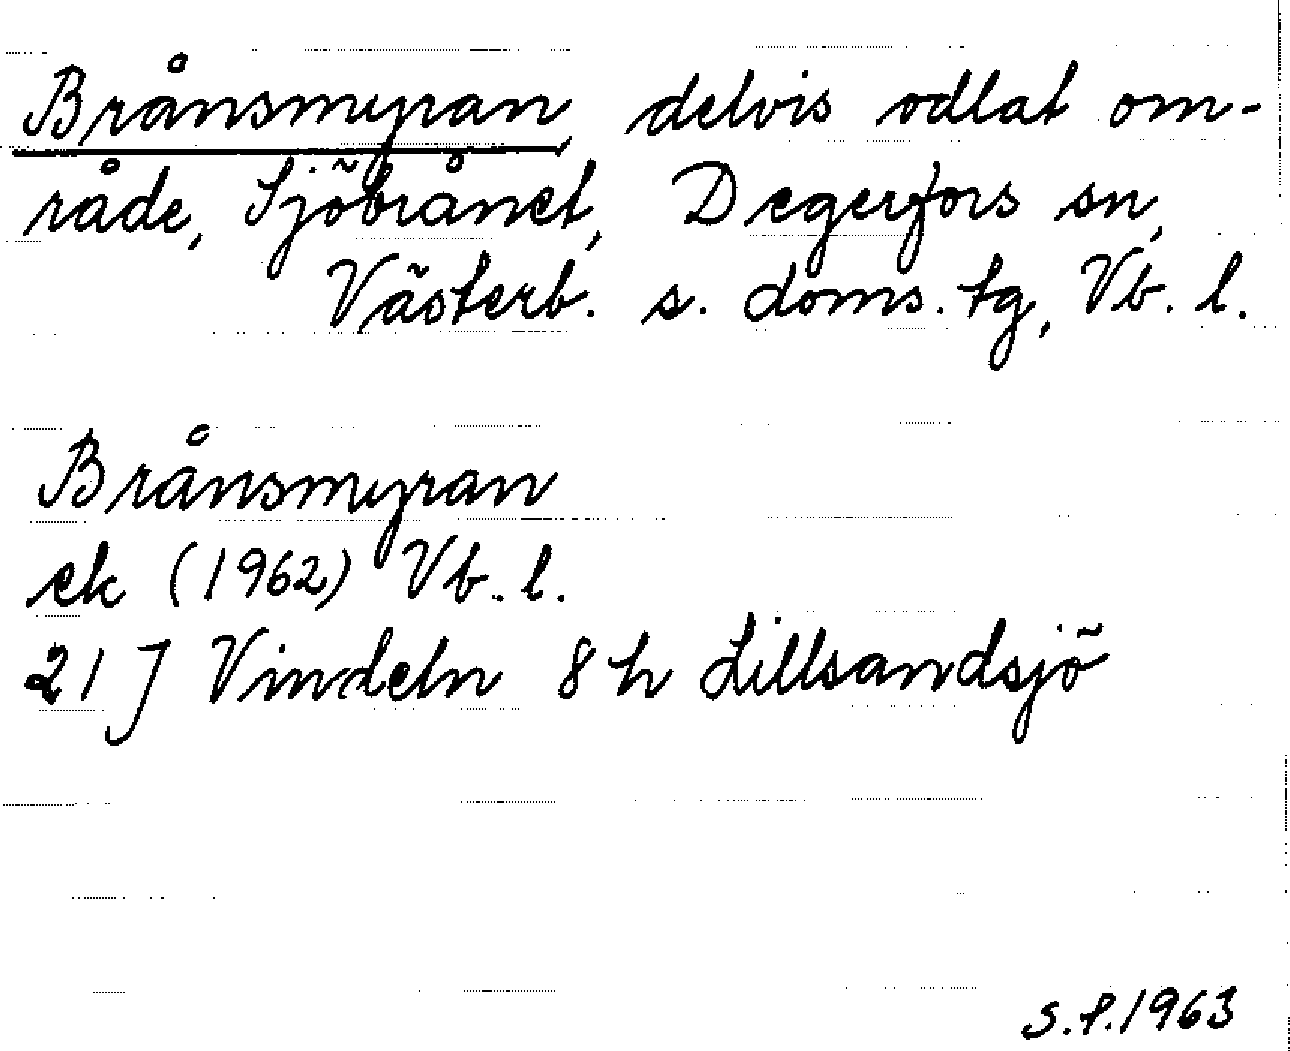 Brånsmyran, delvis odlat om-
råde, Sjöbrånet, Degerfors sn,
Västerb. s. doms. tg, Vb. l.
Brånsmyran
ek (1962) Vb. l.
21 J Vindeln 8 h Lillsandsjö
S.f. 1963